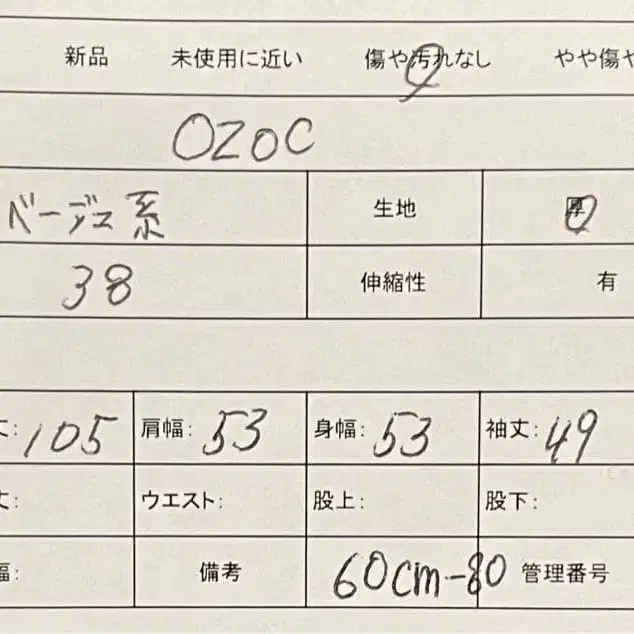 新品 未使用に近い 傷や汚れなし やや傷や
OZOC
ベージュ系 生地 厚
38 伸縮性 有
丈: 105 肩幅: 53 身幅: 53 袖丈: 49
丈: ウエスト: 股上: 股下:
幅: 備考 60cm-80 管理番号